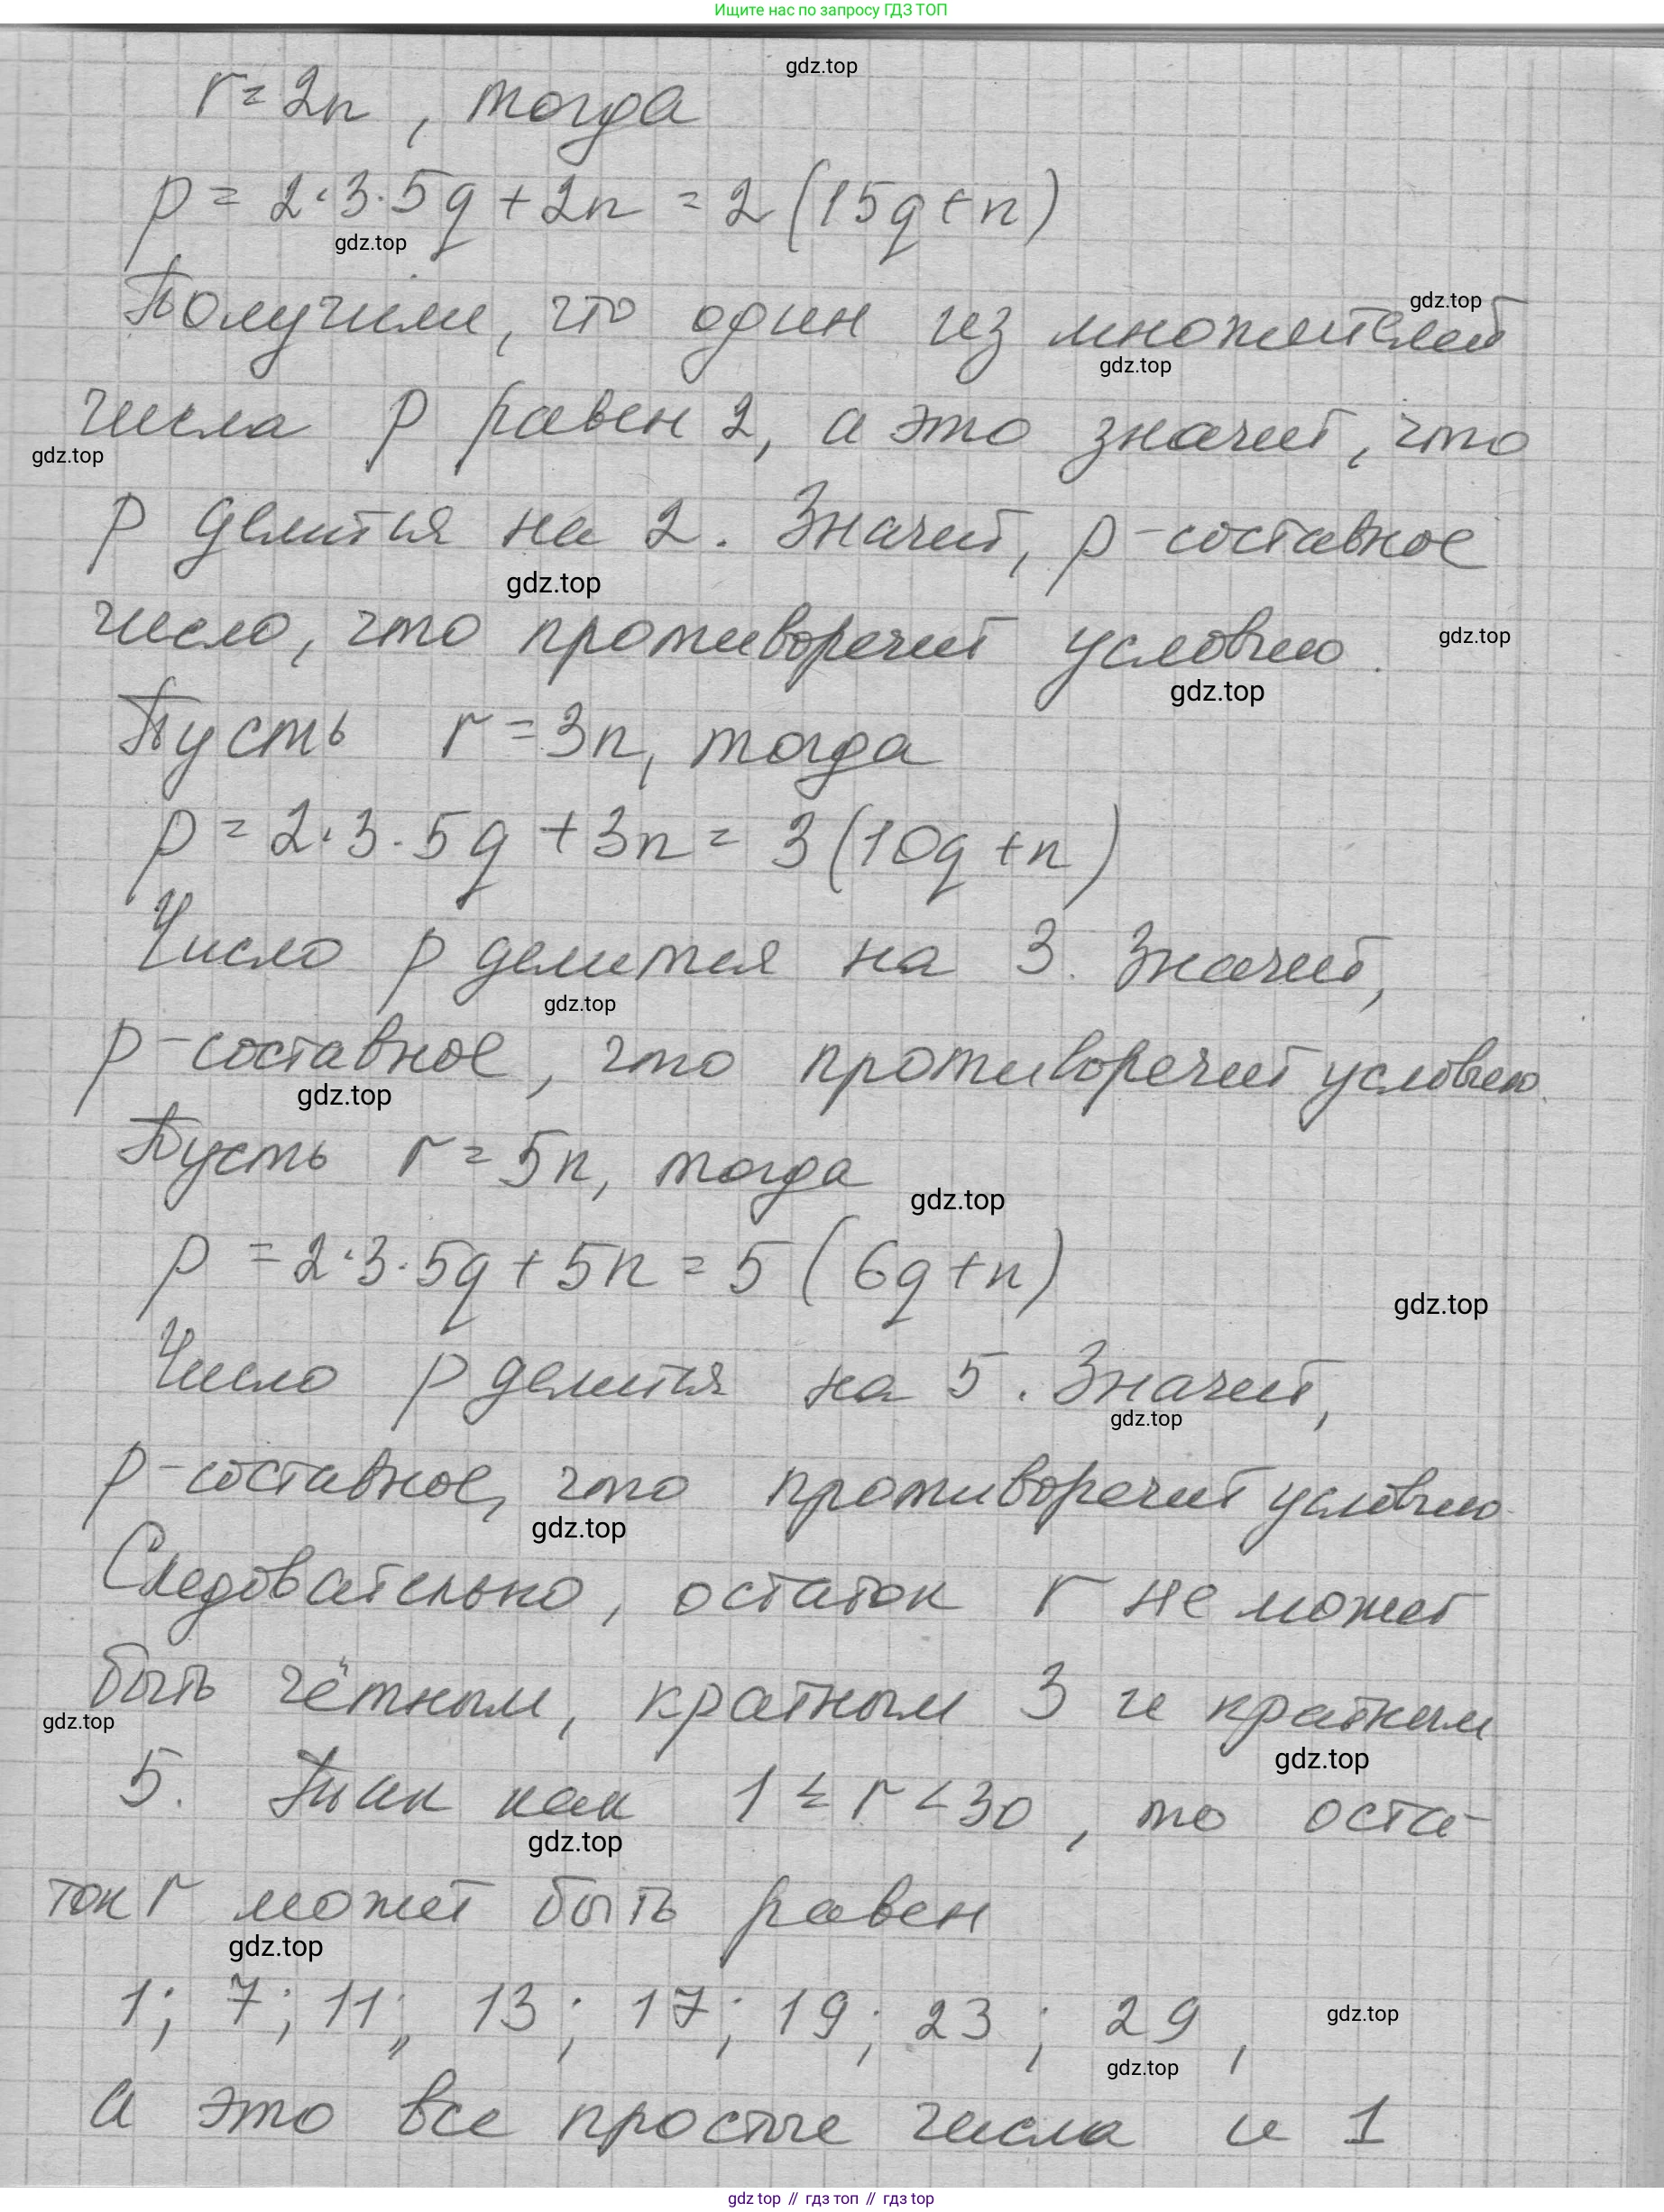 Ищите нас по запросу ГДЗ ТОП
gdz.top
r = 2n, тогда
p = 2·3·5q + 2n = 2(15q + n)
gdz.top
Получим, что один из множителей
gdz.top
gdz.top
числа p равен 2, а это значит, что
gdz.top
p делится на 2. Значит, p - составное
gdz.top
число, что противоречит условию.
gdz.top
gdz.top
Пусть r = 3n, тогда
p = 2·3·5q + 3n = 3(10q + n)
Число p делится на 3. Значит,
gdz.top
p - составное, что противоречит условию.
gdz.top
Пусть r = 5n, тогда
gdz.top
p = 2·3·5q + 5n = 5(6q + n)
gdz.top
Число p делится на 5. Значит,
gdz.top
p - составное, что противоречит условию.
gdz.top
Следовательно, остаток r не может
быть чётным, кратным 3 и кратным
gdz.top
gdz.top
5. Так как 1 ≤ r < 30, то оста-
gdz.top
ток r может быть равен
gdz.top
1; 7; 11; 13; 17; 19; 23; 29,
gdz.top
gdz.top
а это все простые числа и 1
gdz top // гдз топ // gdz top